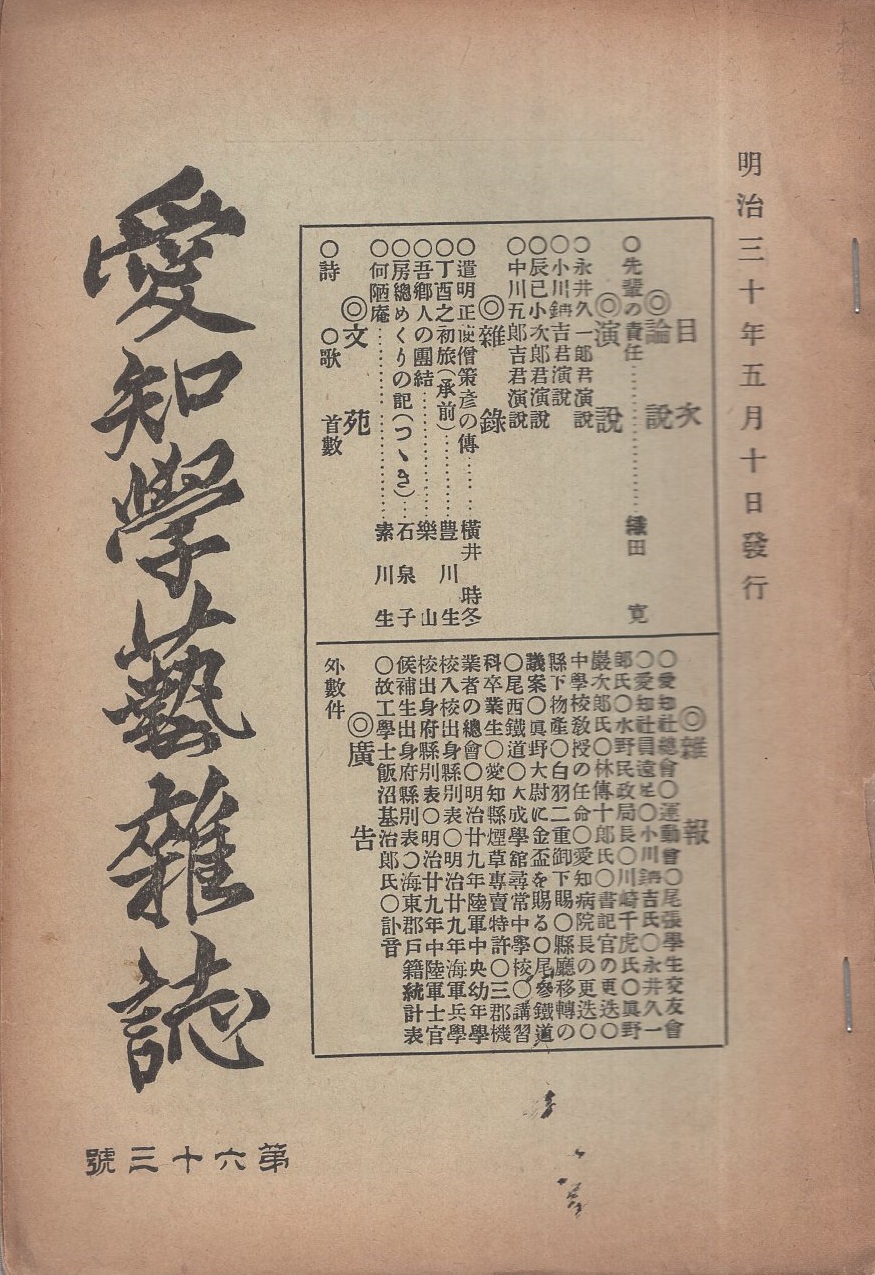 明治三十年五月十日發行
目次
◎論說
○先輩の責任……………………織田 寬
◎演說
○永井久一郞君演說
○小川鈰吉君演說
○辰已小次郞君演說
○中川五郞吉君演說
◎雜錄
○遣明正使僧策彥の傳……橫井時冬
○丁酉之初旅(承前)………豊川生
○吾鄉人の團結………………樂山
○房總めくりの記(つゝき)…石泉子
○何陋庵………………………素川生
◎文苑
○詩 ○歌 首數
◎雜報
○愛知社總會○運動會○尾張學生交友會
○愛知社員遠足○小川鈰吉氏○永井久一
郞氏○水野民政局長○川崎千虎氏○眞野
巖次郞氏○林傳十郞氏○書記官の更迭○
中學校敎授の任命○愛知病院長の更迭○
縣下物產○白羽二重御下賜○縣廳移轉の
議案○眞野大尉に金盃を賜る○尾參鐵道
○尾西鐵道○大成學舘尋常中學校○講習
科卒業生○愛知縣煙草專賣特許○三郡機
業者の總會○明治廿九年陸軍中央幼年學
校入校出身縣別表○明治廿九年海軍兵學
校出身府縣別表○明治廿九年中陸軍士官
候補生出身府縣別表○海東郡戶籍統計表
○故工學士飯沼基治郞氏○訃音
◎廣告
外數件
愛知學藝雜誌
第六十三號